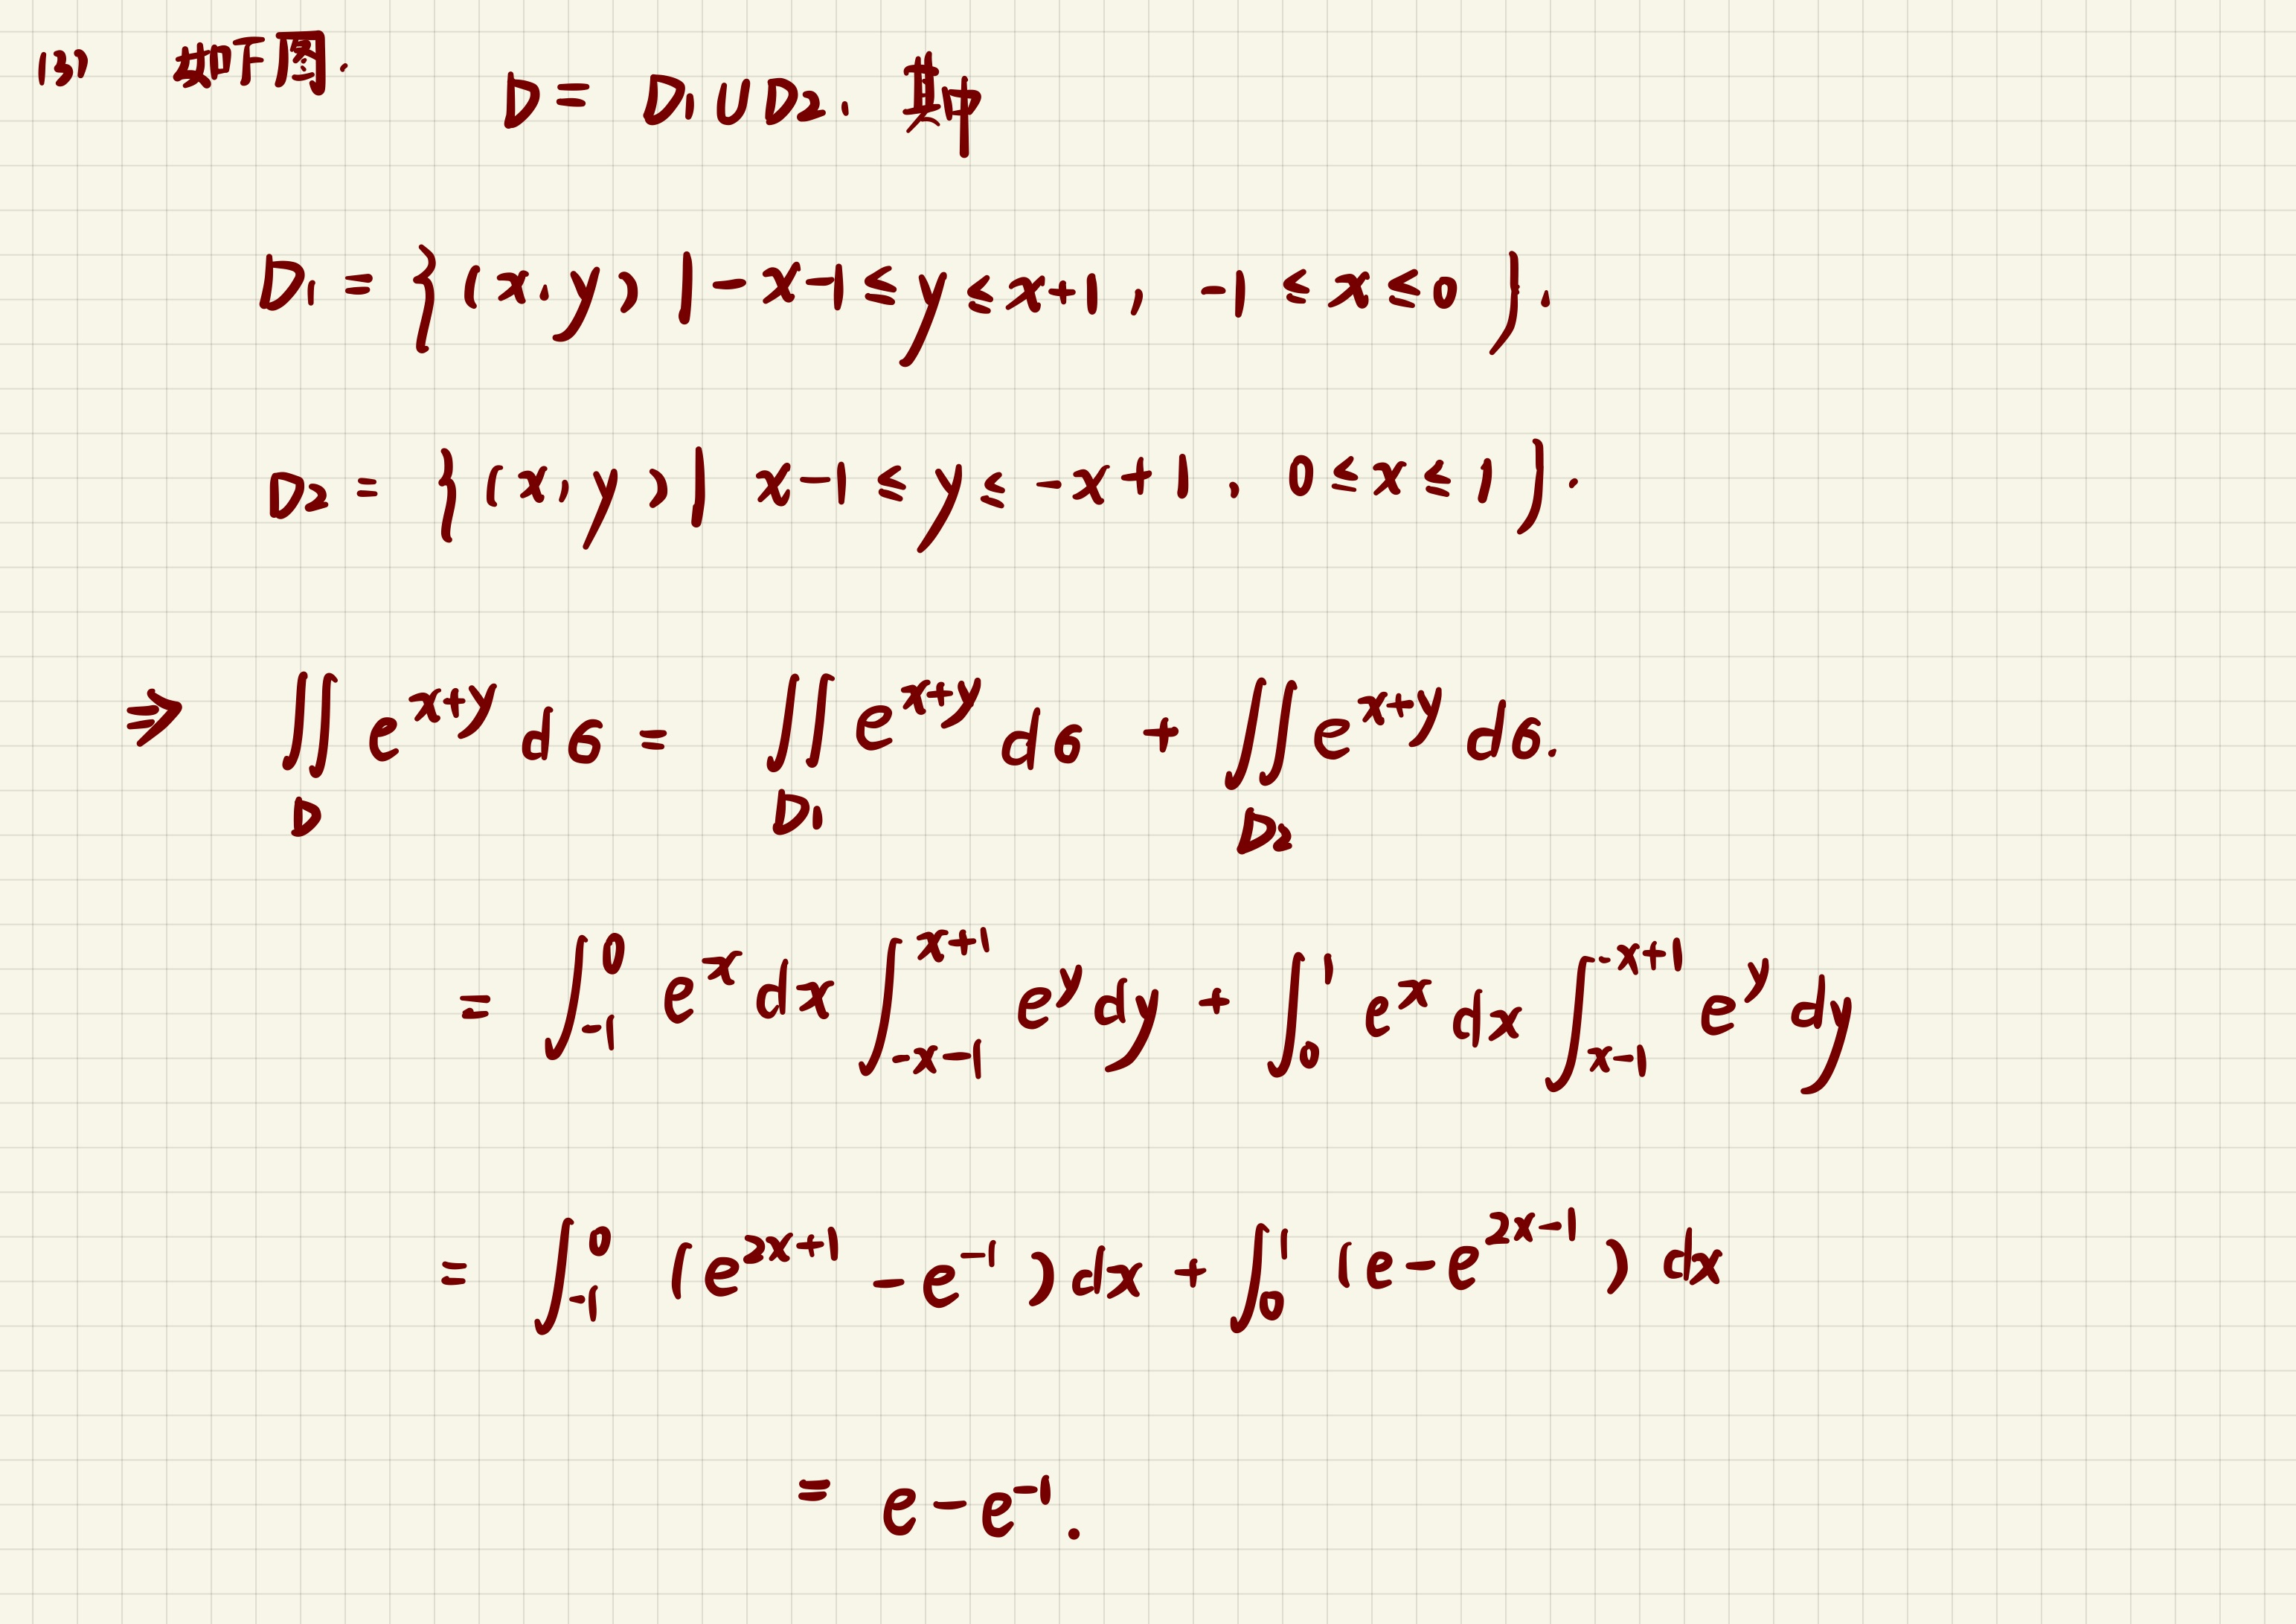 (3) 如下图.
D = D₁ ∪ D₂. 其中
D₁ = {(x, y) | -x-1 ≤ y ≤ x+1, -1 ≤ x ≤ 0}.
D₂ = {(x, y) | x-1 ≤ y ≤ -x+1. 0 ≤ x ≤ 1}.
⇒ ∬_D e^{x+y} dσ = ∬_{D₁} e^{x+y} dσ + ∬_{D₂} e^{x+y} dσ.
= ∫_{-1}^{0} e^x dx ∫_{-x-1}^{x+1} e^y dy + ∫_{0}^{1} e^x dx ∫_{x-1}^{-x+1} e^y dy
= ∫_{-1}^{0} (e^{2x+1} - e^{-1}) dx + ∫_{0}^{1} (e - e^{2x-1}) dx
= e - e^{-1}.